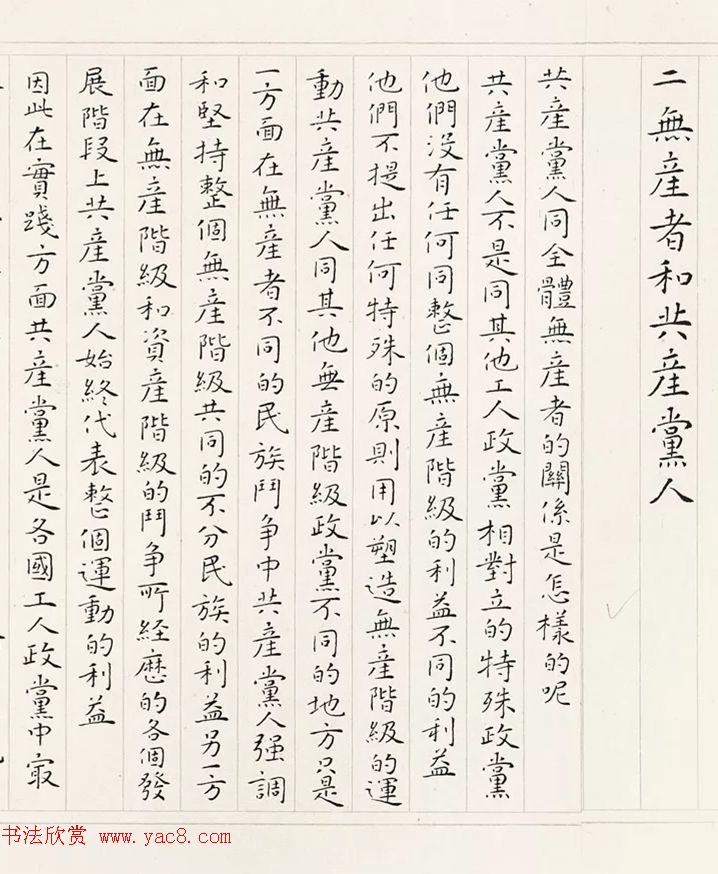 二無産者和共産黨人
共産黨人同全體無産者的關係是怎樣的呢
共産黨人不是同其他工人政黨相對立的特殊政黨
他們没有任何同整個無産階級的利益不同的利益
他們不提出任何特殊的原則用以塑造無産階級的運
動共産黨人同其他無産階級政黨不同的地方只是
一方面在無産者不同的民族鬥争中共産黨人强調
和堅持整個無産階級共同的不分民族的利益另一方
面在無産階級和資産階級的鬥争所経歷的各個發
展階段上共産黨人始終代表整個運動的利益
因此在實踐方面共産黨人是各國工人政黨中最
书法欣赏 www.yac8.com